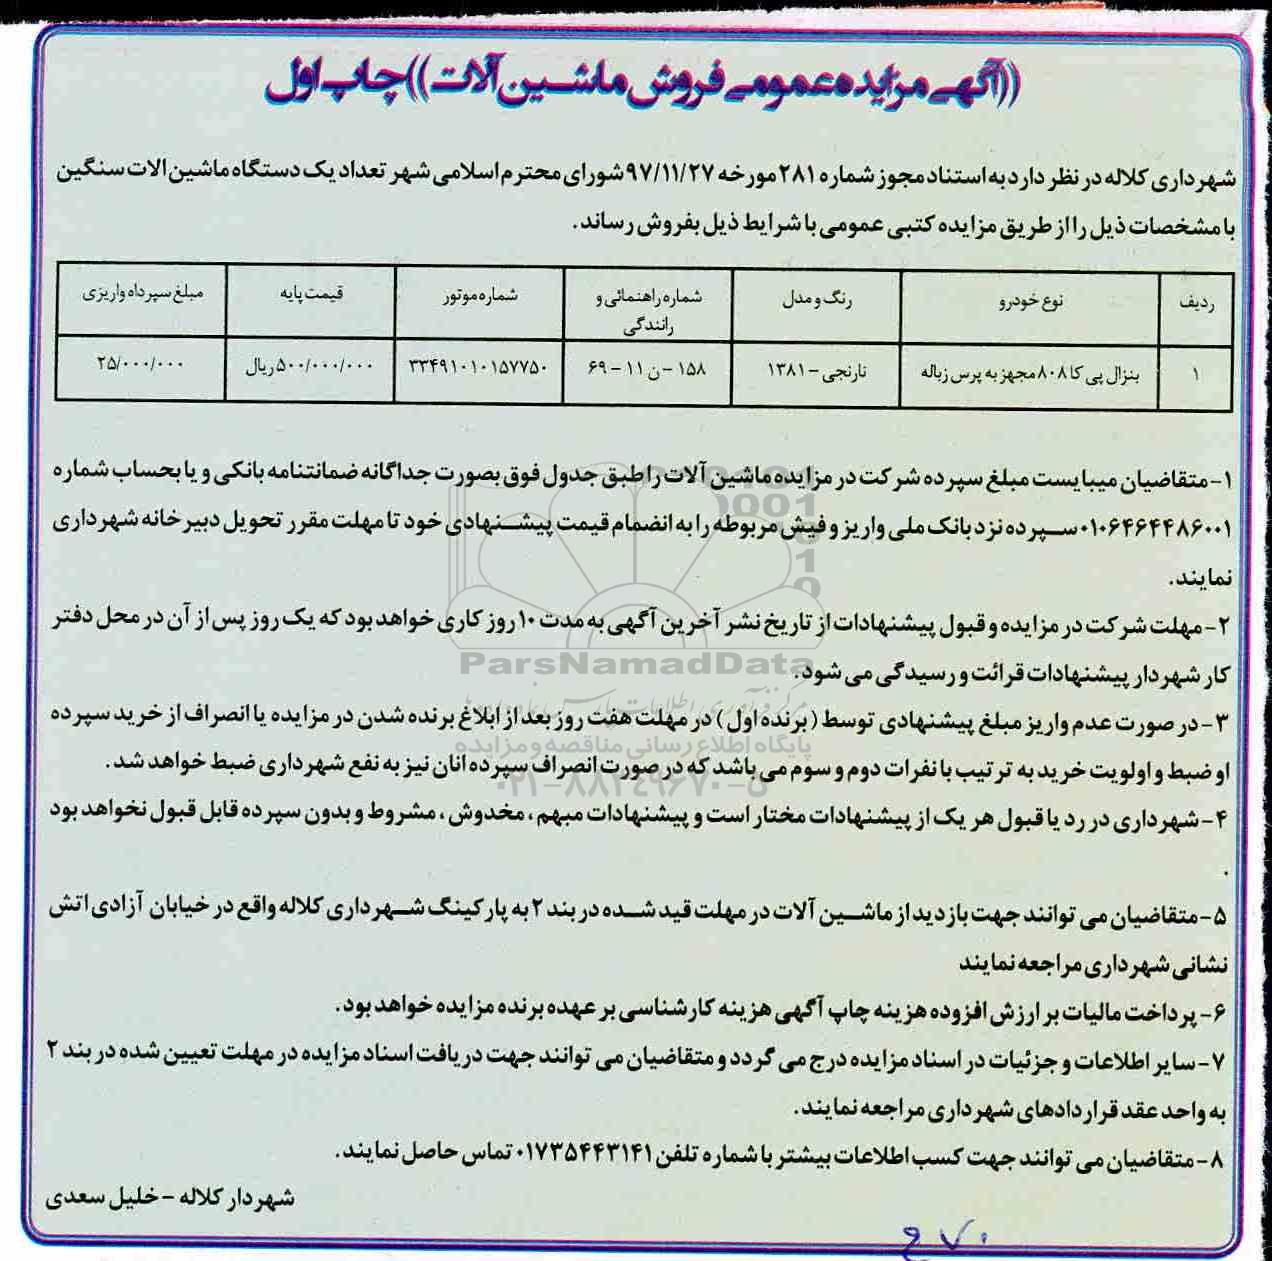 ((آگهی مزایده عمومی فروش ماشین آلات))چاپ اول
شهرداری کلاله در نظر دارد به استناد مجوز شماره ۲۸۱ مورخه ۹۷/۱۱/۲۷ شورای محترم اسلامی شهر تعداد یک دستگاه ماشین الات سنگین
با مشخصات ذیل را از طریق مزایده کتبی عمومی با شرایط ذیل بفروش رساند.
ردیف | نوع خودرو | رنگ و مدل | شماره راهنمائی و رانندگی | شماره موتور | قیمت پایه | مبلغ سپرداه واریزی
۱ | بنزال پی کا ۸۰۸ مجهز به پرس زباله | نارنجی – ۱۳۸۱ | ۱۵۸ – ن ۱۱ – ۶۹ | ۳۳۴۹۱۰۱۰۱۵۷۷۵۰ | ۵۰۰/۰۰۰/۰۰۰ ریال | ۲۵/۰۰۰/۰۰۰
۱- متقاضیان میبایست مبلغ سپرده شرکت در مزایده ماشین آلات را طبق جدول فوق بصورت جداگانه ضمانتنامه بانکی و یا بحساب شماره
۰۱۰۶۴۶۴۴۸۶۰۰۱ سپرده نزد بانک ملی واریز و فیش مربوطه را به انضمام قیمت پیشنهادی خود تا مهلت مقرر تحویل دبیرخانه شهرداری
نمایند.
۲- مهلت شرکت در مزایده و قبول پیشنهادات از تاریخ نشر آخرین آگهی به مدت ۱۰ روز کاری خواهد بود که یک روز پس از آن در محل دفتر
کار شهردار پیشنهادات قرائت و رسیدگی می شود.
۳- در صورت عدم واریز مبلغ پیشنهادی توسط (برنده اول) در مهلت هفت روز بعد از ابلاغ برنده شدن در مزایده یا انصراف از خرید سپرده
او ضبط و اولویت خرید به ترتیب با نفرات دوم و سوم می باشد که در صورت انصراف سپرده انان نیز به نفع شهرداری ضبط خواهد شد.
۴- شهرداری در رد یا قبول هر یک از پیشنهادات مختار است و پیشنهادات مبهم، مخدوش، مشروط و بدون سپرده قابل قبول نخواهد بود
.
۵- متقاضیان می توانند جهت بازدید از ماشین آلات در مهلت قید شده در بند ۲ به پارکینگ شهرداری کلاله واقع در خیابان آزادی اتش
نشانی شهرداری مراجعه نمایند
۶- پرداخت مالیات بر ارزش افزوده هزینه چاپ آگهی هزینه کارشناسی بر عهده برنده مزایده خواهد بود.
۷- سایر اطلاعات و جزئیات در اسناد مزایده درج می گردد و متقاضیان می توانند جهت دریافت اسناد مزایده در مهلت تعیین شده در بند ۲
به واحد عقد قراردادهای شهرداری مراجعه نمایند.
۸- متقاضیان می توانند جهت کسب اطلاعات بیشتر با شماره تلفن ۰۱۷۳۵۴۴۳۱۴۱ تماس حاصل نمایند.
شهردار کلاله – خلیل سعدی
ParsNamadData
پایگاه اطلاع رسانی مناقصه و مزایده
۰۲۱-۸۸۳۴۹۶۷۰-۵